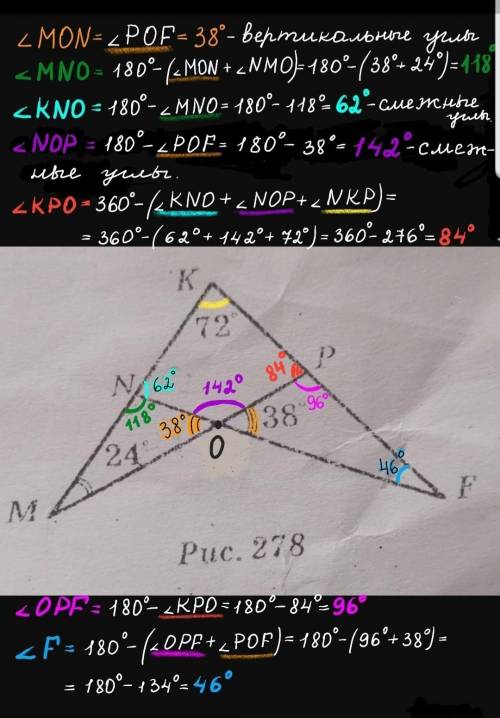 ∠MON = ∠POF = 38° - вертикальные углы
∠MNO = 180° - (∠MON + ∠NMO) = 180° - (38° + 24°) = 118°
∠KNO = 180° - ∠MNO = 180° - 118° = 62° - смежные углы
∠NOP = 180° - ∠POF = 180° - 38° = 142° - смеж-
ные углы.
∠KPO = 360° - (∠KNO + ∠NOP + ∠NKP) =
= 360° - (62° + 142° + 72°) = 360° - 276° = 84°
K
72°
N 62° 142° 84° P
118° 38° 38° 96°
24° O 46°
M F
Рис. 278
∠OPF = 180° - ∠KPO = 180° - 84° = 96°
∠F = 180° - (∠OPF + ∠POF) = 180° - (96° + 38°) =
= 180° - 134° = 46°